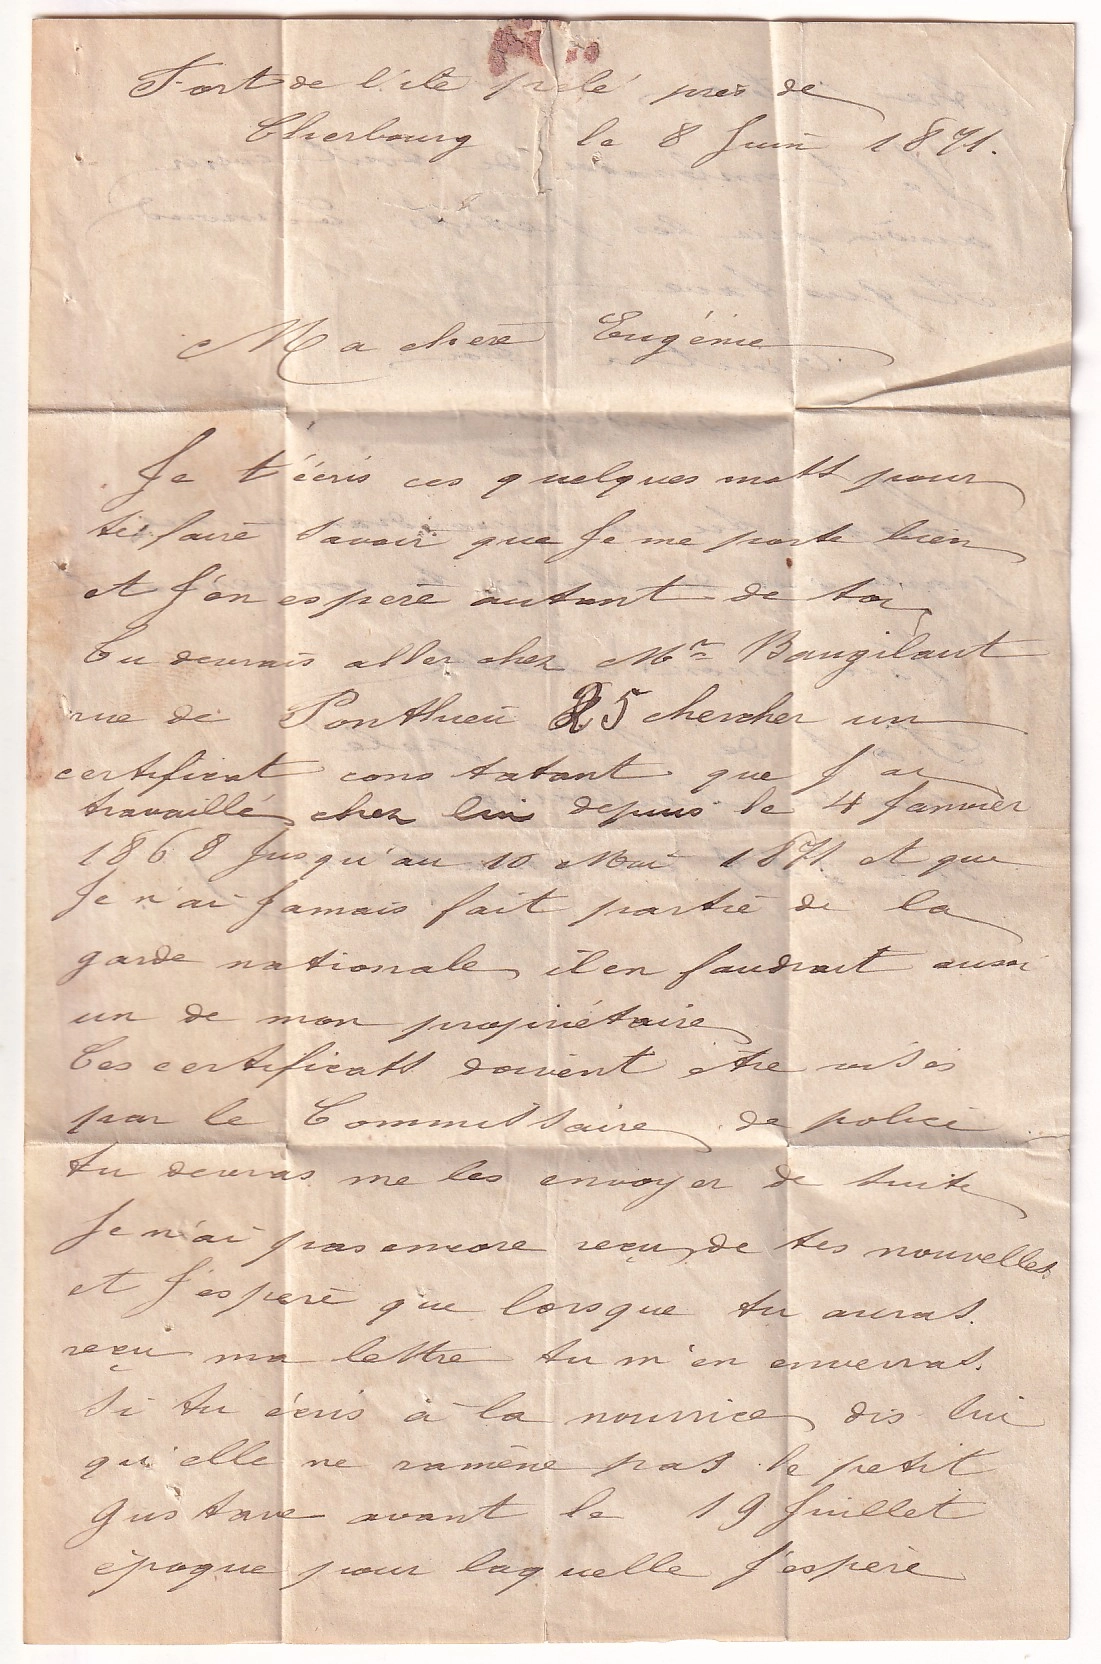 Fort de l'ile pelé pres de
Cherbourg le 8 Juin 1871.
Ma chere Eugénie
Je t'écris ces quelques mots pour
te faire savoir que Je me porte bien
et J'en espere autant de toi
Tu devrais aller chez Mr Baugilaut
rue de Ponthieu 25 chercher un
certificat constatant que J'ai
travaillé chez lui depuis le 4 Janvier
1868 Jusqu'au 10 Mai 1871 et que
Je n'ai Jamais fait partie de la
garde nationale il en faudrait aussi
un de mon propriétaire
Ces certificats doivent être visés
par le Commissaire de police
tu devras me les envoyer de suite
Je n'ai pas encore reçu de tes nouvelles
et J'espere que lorsque tu auras
reçu ma lettre tu m'en enverras.
Si tu écris à la nourrice dis lui
qu'elle ne ramène pas le petit
Gustave avant le 19 Juillet
époque pour laquelle J'espere